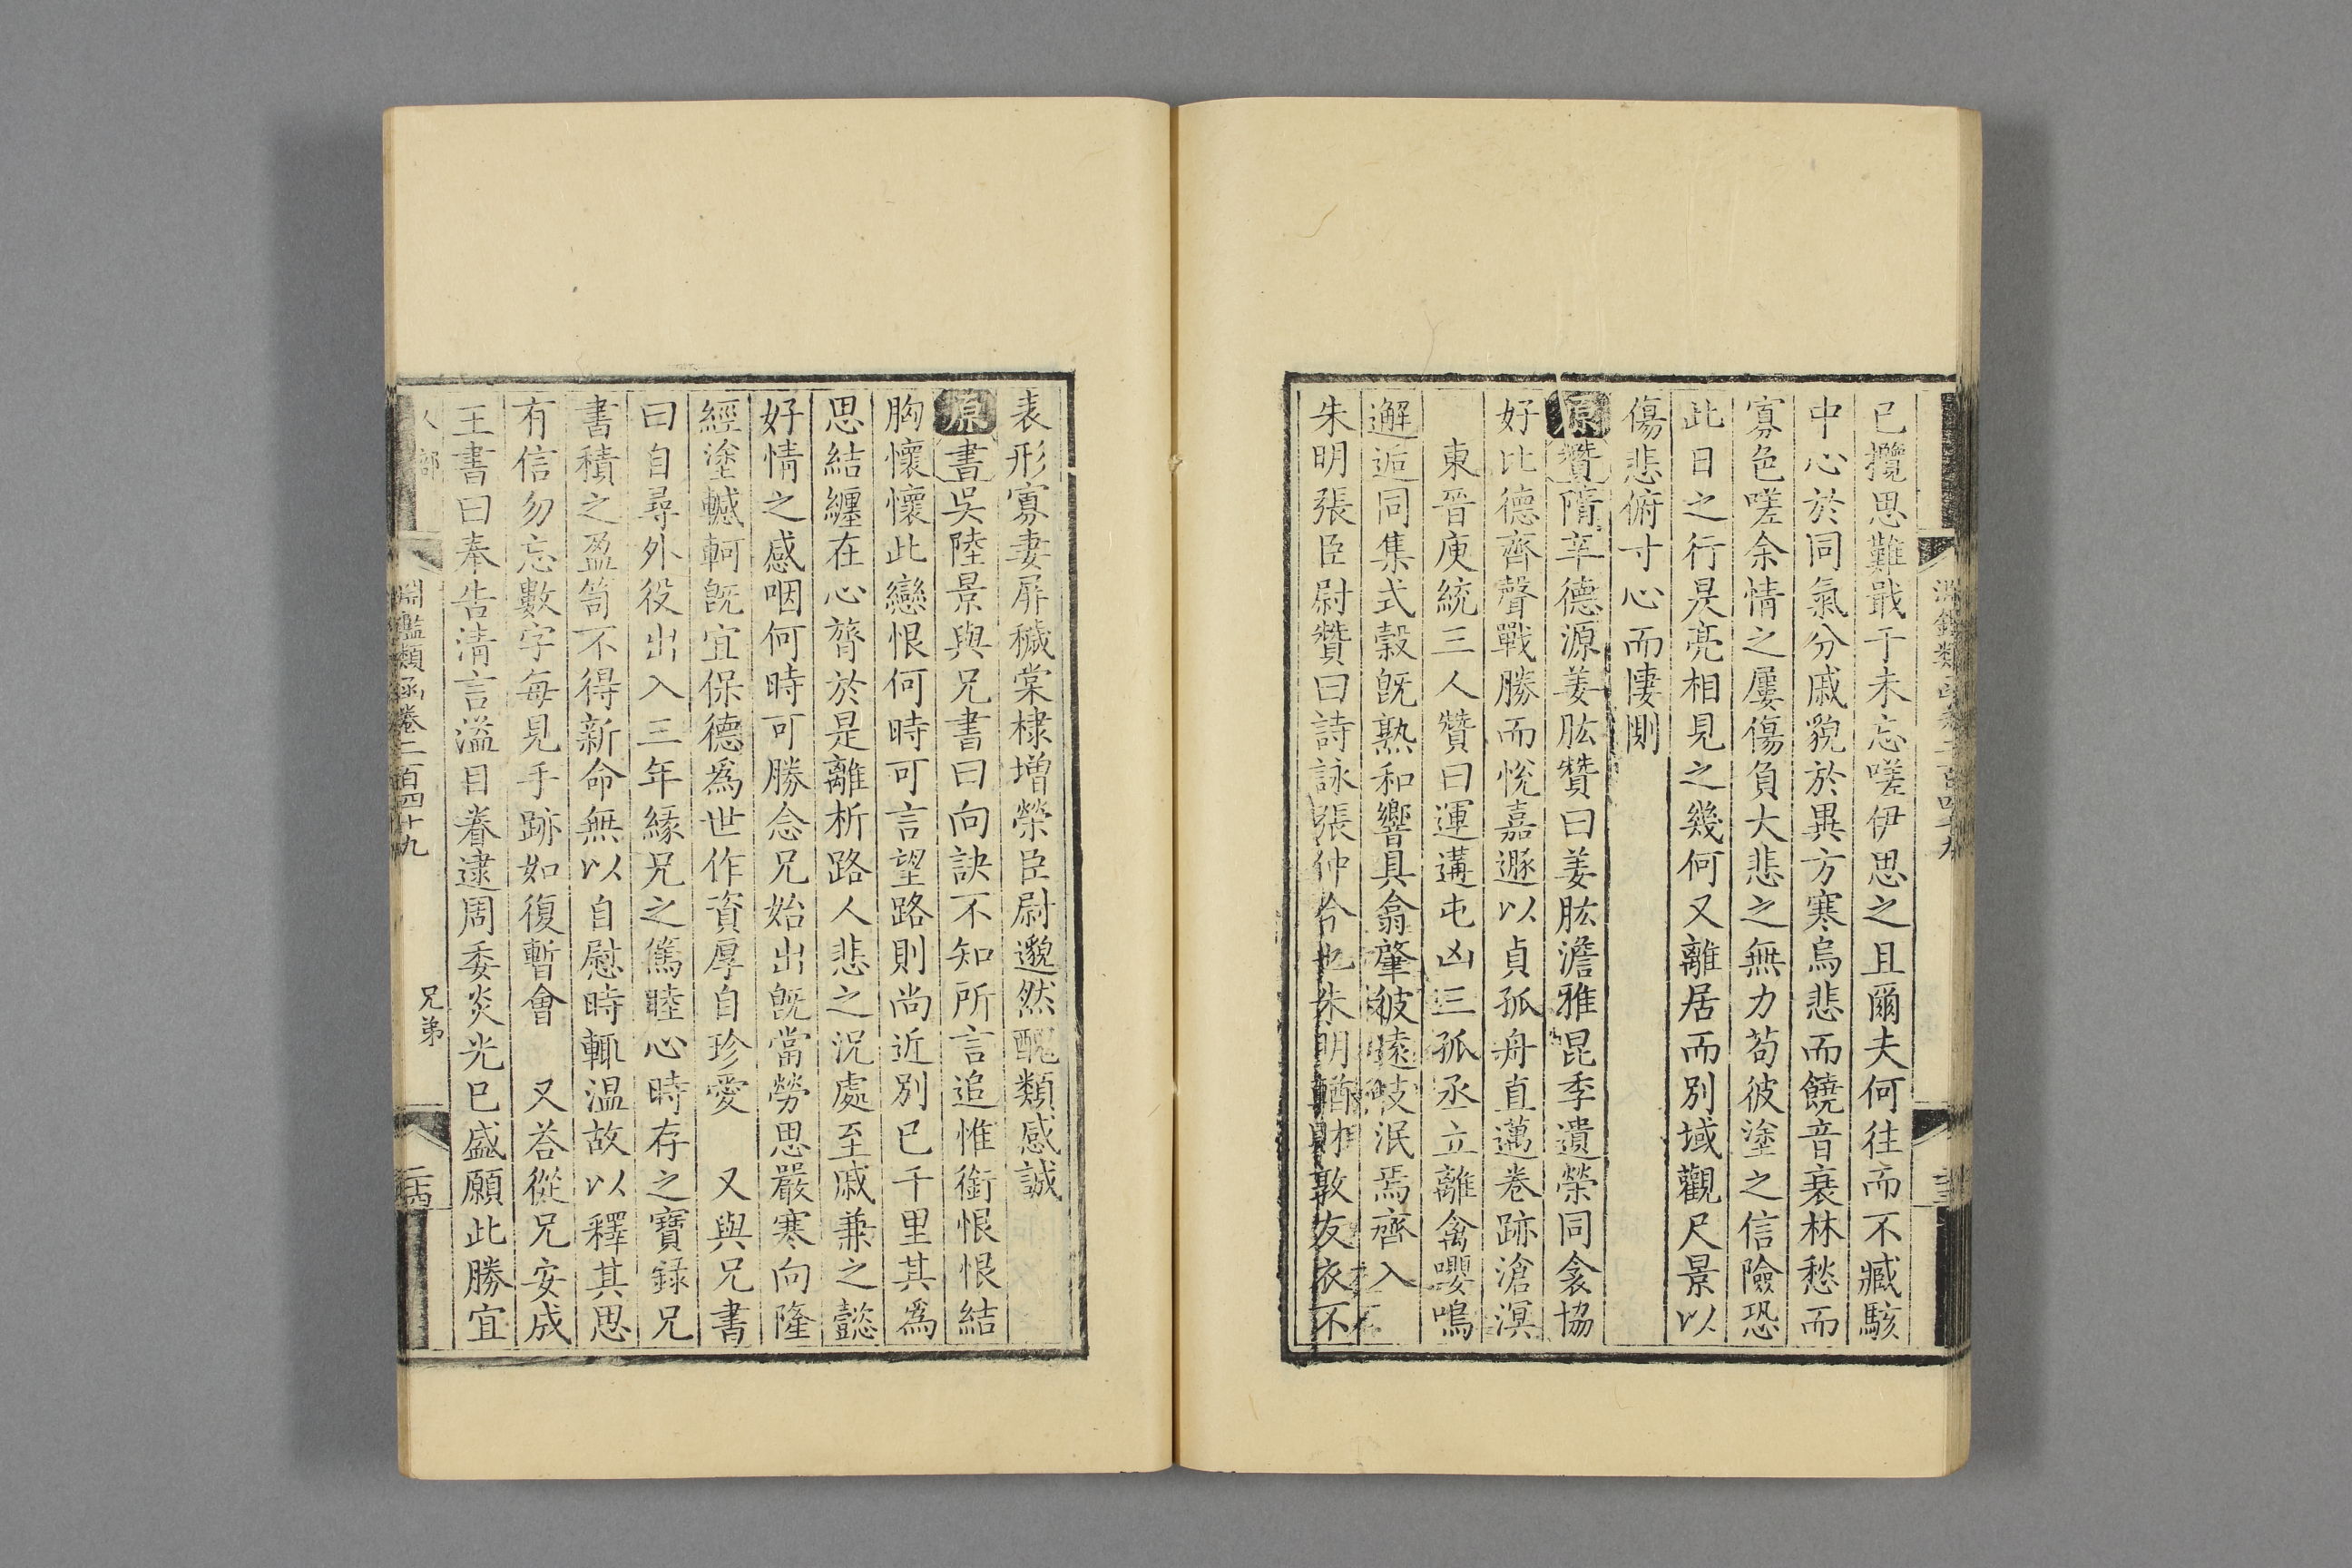 已攬思難戢于未忘嗟伊思之且爾夫何往而不臧駭
中心於同氣分戚貌於異方寒烏悲而饒音衰林愁而
寡色嗟余情之屢傷負大悲之無力苟彼塗之信險恐
此日之行是亮相見之幾何又離居而別域觀尺景以
傷悲俯寸心而悽惻
原贊隋辛德源姜肱贊曰姜肱澹雅昆季遺榮同衾協
好比德齊聲戰勝而悅嘉遯以貞孤舟直邁卷跡滄溟
東晉庾統三人贊曰運遘屯凶三孤丞立離禽嚶鳴
邂逅同集式穀旣熟和響具翕肇彼遠岐泯焉齊入
朱明張臣尉贊曰詩詠張仲今也朱明輶財敦友衣不
表形寡妻屏穢棠棣增榮臣尉邈然醜類感誠
原書吳陸景與兄書曰向訣不知所言追惟銜恨恨結
胸懷懷此戀恨何時可言望路則尚近別已千里其爲
思結纏在心膂於是離析路人悲之況處至戚兼之懿
好情之感咽何時可勝念兄始出旣當勞思嚴寒向隆
經塗轗軻旣宜保德爲世作資厚自珍愛　又與兄書
曰自尋外役出入三年緣兄之篤睦心時存之寶錄兄
書積之盈笥不得新命無以自慰時輒温故以釋其思
有信勿忘數字每見手跡如復暫會　又荅從兄安成
王書曰奉告淸言溢目眷逮周委炎光已盛願此勝宜
淵鑑類函卷二百四十九
兄弟
二十四